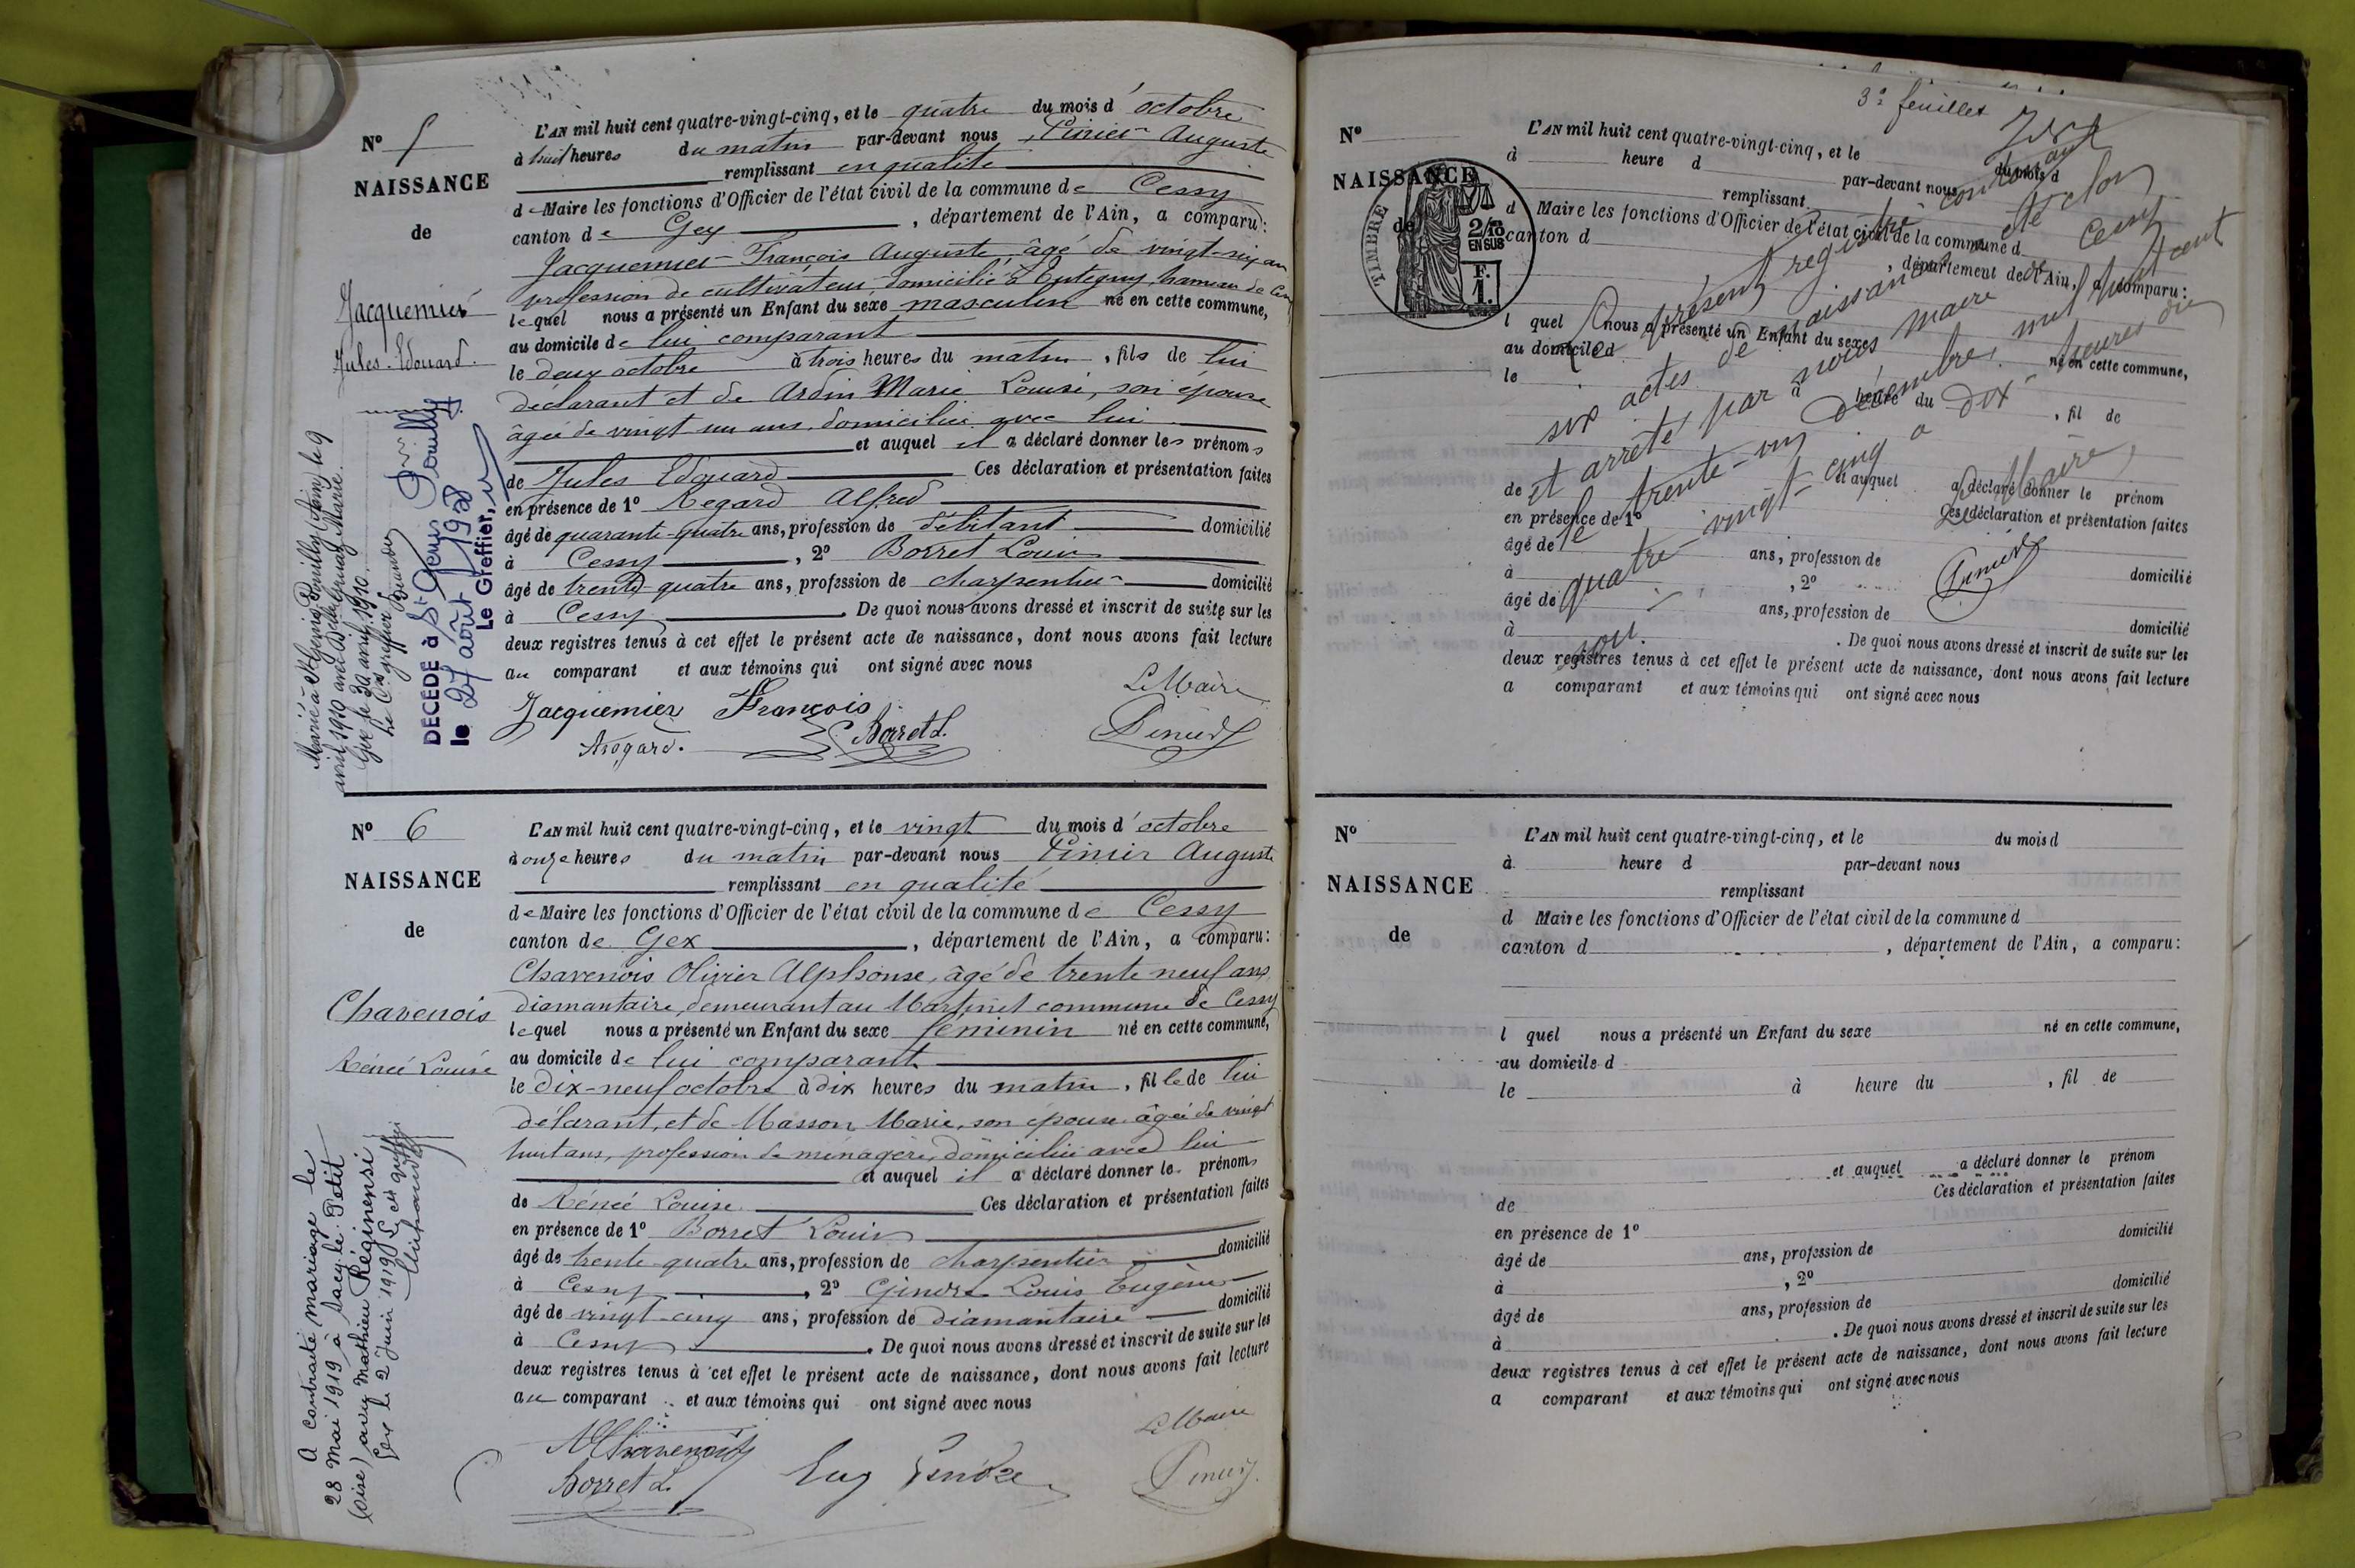 N° 5
NAISSANCE
de
Jacquemier
Jules Edouard.
Marié à St Genis Pouilly (Ain) le 9
avril 1910 avec Marie.
Gex le 30 avril 1910.
Le greffier
DÉCÉDÉ à St Genis Pouilly
le 27 août
Le Greffier,
L'AN mil huit cent quatre-vingt-cinq, et le quatre du mois d'octobre
à huit heures du matin par-devant nous Auguste
remplissant en qualité
de Maire les fonctions d'Officier de l'état civil de la commune de Cessy
canton de Gex, département de l'Ain, a comparu:
Jacquemier François Auguste, âgé de vingt-six ans
profession de cultivateur, domicilié à hameau de Cessy
lequel nous a présenté un Enfant du sexe masculin né en cette commune,
au domicile de lui comparant
le deux octobre à trois heures du matin, fils de lui
déclarant et de Ardin Marie Louise, son épouse
âgée de vingt un ans, domiciliée avec lui
et auquel il a déclaré donner les prénoms
de Jules Edouard Ces déclaration et présentation faites
en présence de 1° Regard Alfred
âgé de quarante-quatre ans, profession de débitant domicilié
à Cessy, 2° Borret Louis
âgé de trente quatre ans, profession de charpentier domicilié
à Cessy. De quoi nous avons dressé et inscrit de suite sur les
deux registres tenus à cet effet le présent acte de naissance, dont nous avons fait lecture
au comparant et aux témoins qui ont signé avec nous
Le Maire
Jacquemier François
A Regard. Borret L.
N° 6
NAISSANCE
de
Chavenois
Rénée Louise
A contracté mariage le
28 Mai 1919 à Sacy le Petit
(Oise) avec Mathieu Réginensi
Gex le 2 Juin 1919
L'AN mil huit cent quatre-vingt-cinq, et le vingt du mois d'octobre
à onze heures du matin par-devant nous Auguste
remplissant en qualité
de Maire les fonctions d'Officier de l'état civil de la commune de Cessy
canton de Gex, département de l'Ain, a comparu:
Chavenois Olivier Alphonse, âgé de trente neuf ans,
diamantaire, demeurant au Martinet commune de Cessy
lequel nous a présenté un Enfant du sexe féminin né en cette commune,
au domicile de lui comparant
le dix-neuf octobre à dix heures du matin, fille de lui
déclarant, et de Masson Marie, son épouse âgée de vingt
huit ans, profession de ménagère, domiciliée avec lui
et auquel il a déclaré donner les prénoms
de Rénée Louise Ces déclaration et présentation faites
en présence de 1° Borret Louis
âgé de trente quatre ans, profession de charpentier domicilié
à Cessy, 2° Gindre Louis Eugène
âgé de vingt-cinq ans, profession de diamantaire domicilié
à Cessy. De quoi nous avons dressé et inscrit de suite sur les
deux registres tenus à cet effet le présent acte de naissance, dont nous avons fait lecture
au comparant et aux témoins qui ont signé avec nous
Le Maire
Borret L. Eug Gindre
3e feuillet
N°
NAISSANCE
de
TIMBRE
2/10 EN SUS
F. 1.
L'AN mil huit cent quatre-vingt-cinq, et le du mois d
à heure d par-devant nous
remplissant
d Maire les fonctions d'Officier de l'état civil de la commune d
canton d, département de l'Ain, a comparu:
l quel nous a présenté un Enfant du sexe né en cette commune,
au domicile d
le à heure du, fil de
et auquel a déclaré donner le prénom
de Ces déclaration et présentation faites
en présence de 1°
âgé de ans, profession de domicilié
à, 2°
âgé de ans, profession de domicilié
à. De quoi nous avons dressé et inscrit de suite sur les
deux registres tenus à cet effet le présent acte de naissance, dont nous avons fait lecture
a comparant et aux témoins qui ont signé avec nous
Le présent registre contenant
six actes de naissance a été clos
et arrêté par nous maire de Cessy
le trente-un décembre mil huit cent
quatre-vingt-cinq à dix heures du
soir.
Le Maire
N°
NAISSANCE
de
L'AN mil huit cent quatre-vingt-cinq, et le du mois d
à heure d par-devant nous
remplissant
d Maire les fonctions d'Officier de l'état civil de la commune d
canton d, département de l'Ain, a comparu:
l quel nous a présenté un Enfant du sexe né en cette commune,
au domicile d
le à heure du, fil de
et auquel a déclaré donner le prénom
de Ces déclaration et présentation faites
en présence de 1°
âgé de ans, profession de domicilié
à, 2°
âgé de ans, profession de domicilié
à. De quoi nous avons dressé et inscrit de suite sur les
deux registres tenus à cet effet le présent acte de naissance, dont nous avons fait lecture
a comparant et aux témoins qui ont signé avec nous